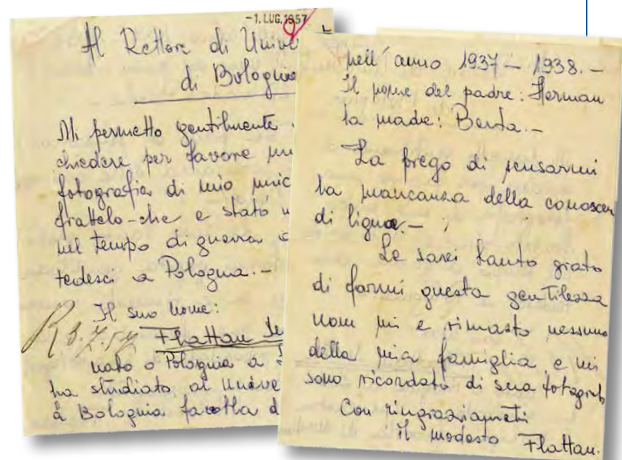 -1. LUG. 1957
Al Rettore di Unive
di Bologna
Mi permetto gentilmente
chiedere per favore
fotografia di mio unic
fratelo - che e stato
nel tempo di guerra
tedesci a Pologna.-
Il suo nome:
Flattau
nato o Pologna a
ha studiato ai
a Bolognia facolta d
nell'anno 1937 - 1938.-
Il nome del padre: Herman
la madre: Berta.-
La prego di scusarmi
la mancanza della conoscen
di ligua.-
Le sarei tanto grato
di farmi questa gentilessa
nom mi e rimasto nessuno
della mia famiglia e mi
sono ricordato di sua fotografi
Con ringraziameti
il modesto Flattau.